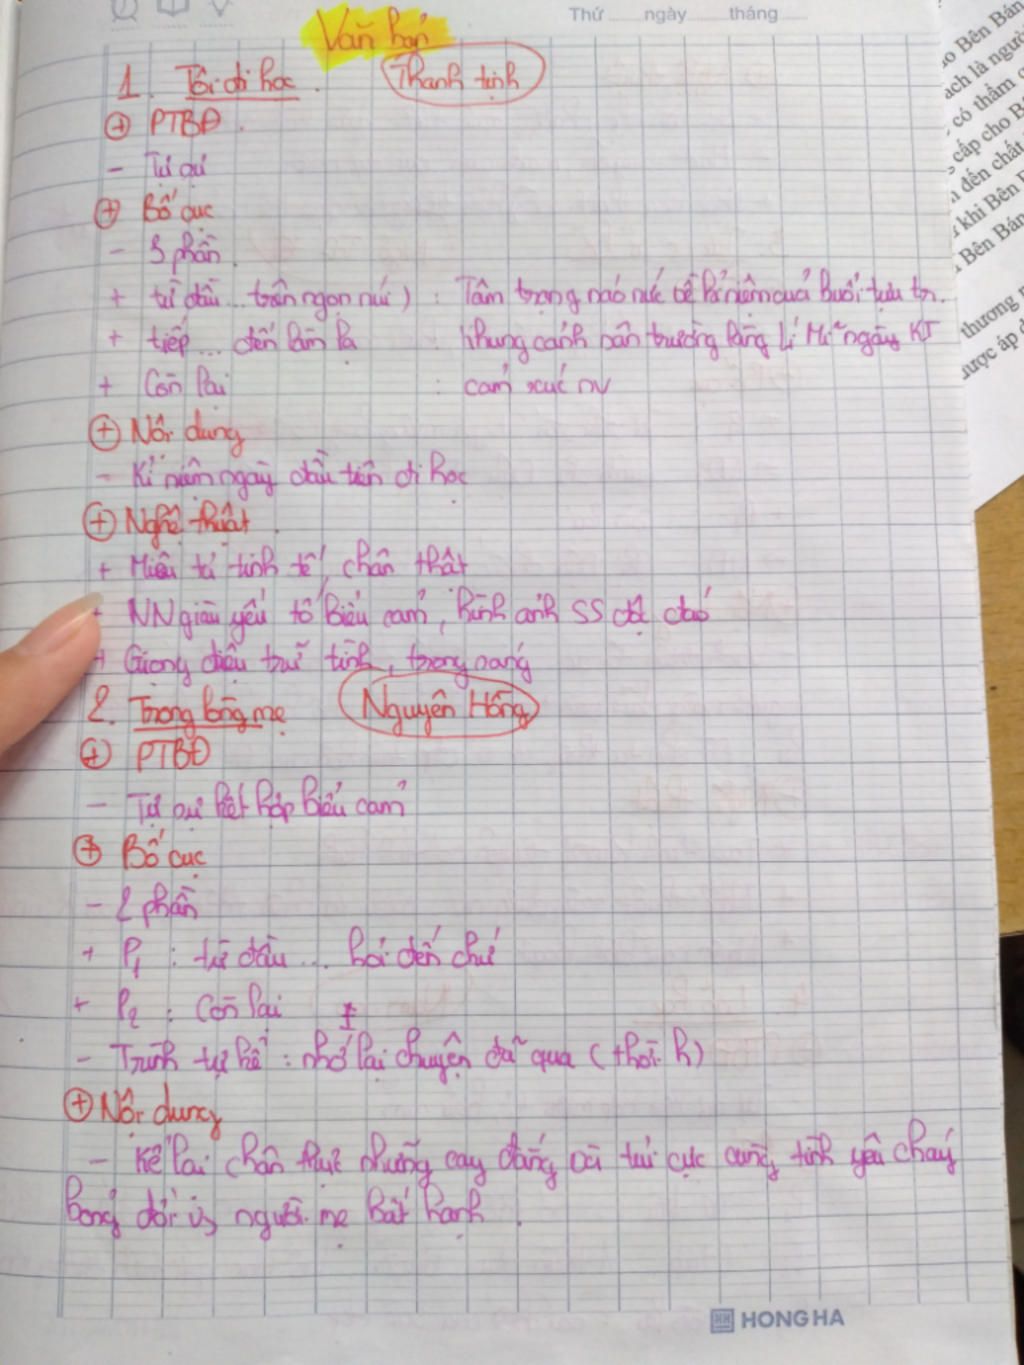 Thứ ...... ngày ........ tháng ......
Văn bản
1. Tôi đi học. Thanh tịnh
+ PTBĐ.
- Tự sự
+ Bố cục
- 3 phần.
+ từ đầu... trên ngọn núi) : Tâm trạng náo nức về kỉ niệm của buổi tựu tr.
+ tiếp... đến lắm lạ : khung cảnh sân trường làng Lí Mĩ ngày KT
+ Còn lại : cảm xúc nv
+ Nội dung
- Kỉ niệm ngày đầu tiên đi học
+ Nghệ thuật.
+ Miêu tả tinh tế, chân thật
+ NN giàu yếu tố biểu cảm, hình ảnh SS độc đáo
+ Giọng điệu trữ tình, trong sáng
2. Trong lòng mẹ Nguyên Hồng
+ PTBĐ
- Tự sự kết hợp biểu cảm
+ Bố cục
- 2 phần
+ P1 : từ đầu ... hỏi đến chứ
+ P2 : Còn lại
- Trình tự kể : nhớ lại chuyện đã qua (thời.h)
+ Nội dung
- Kể lại chân thực những cay đắng và tủi cực cùng tình yêu cháy
bỏng đối vs người mẹ bất hạnh.
HONG HA
ao Bên Bán
ách là người
có thẩm q
cấp cho B
đến chất
khi Bên
Bên Bán
thương
được áp d